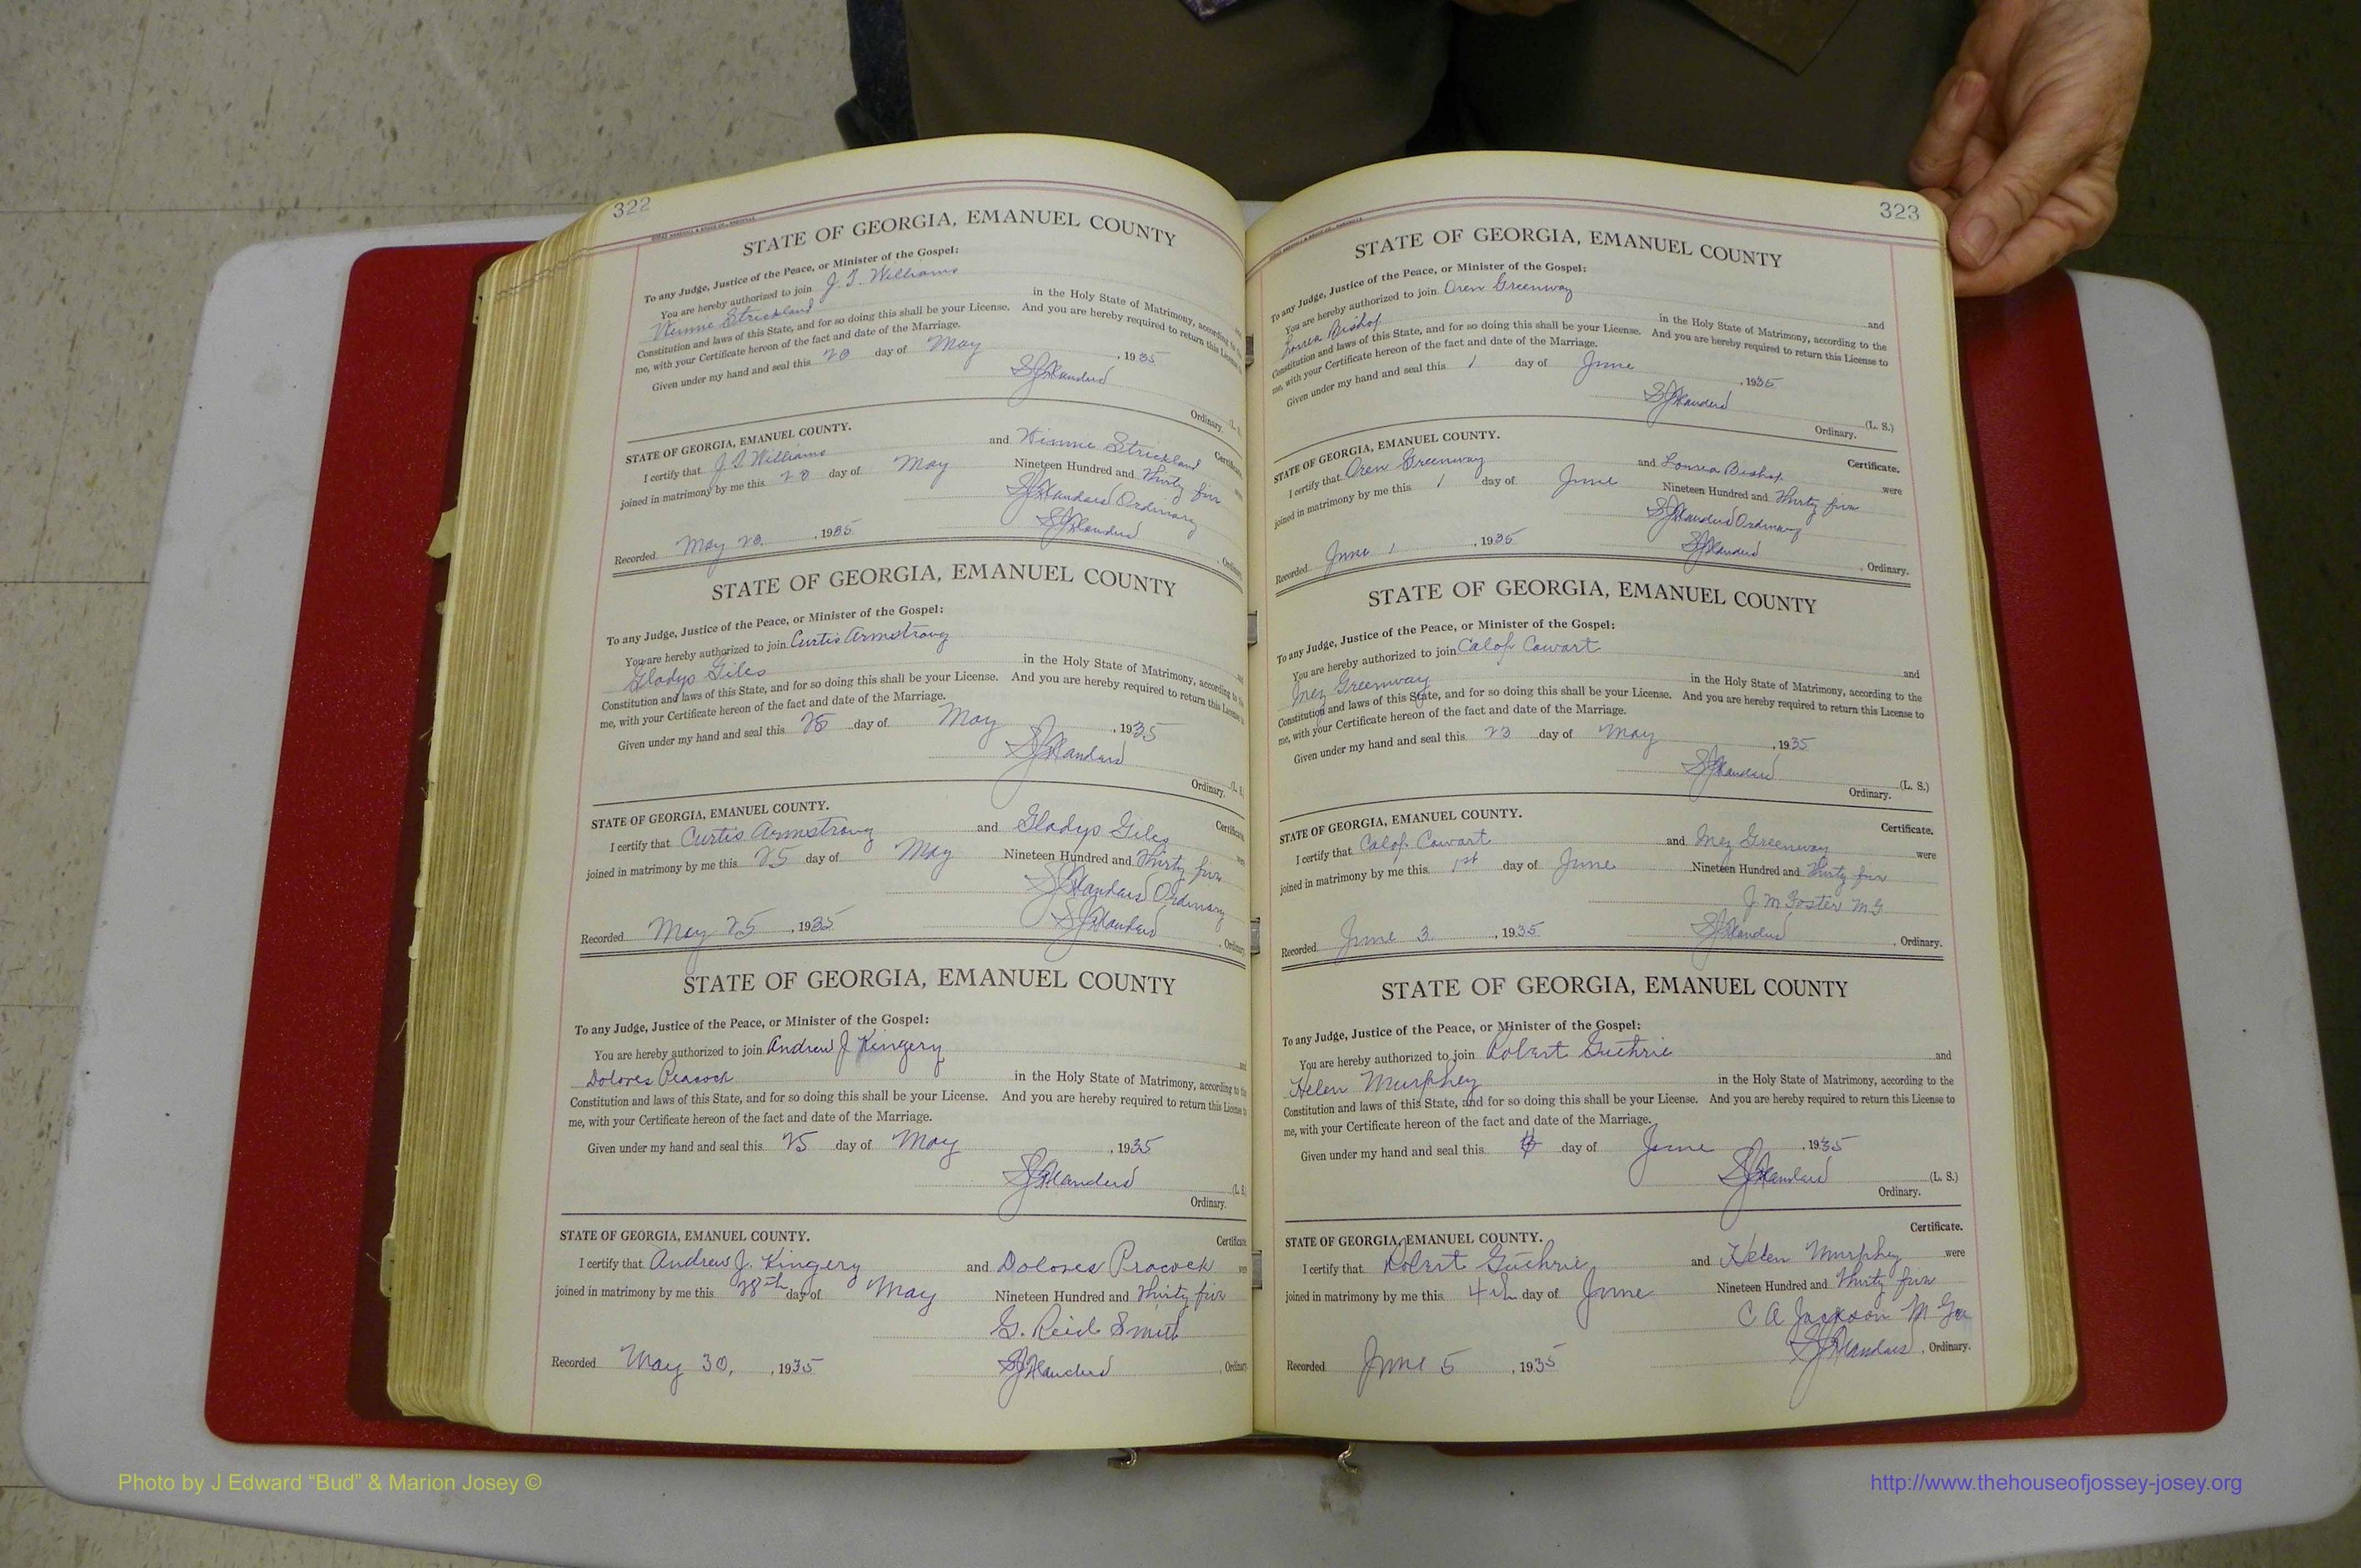 322
STATE OF GEORGIA, EMANUEL COUNTY
To any Judge, Justice of the Peace, or Minister of the Gospel:
You are hereby authorized to join J. T. Williams and
Strickland in the Holy State of Matrimony, according to the
Constitution and laws of this State, and for so doing this shall be your License. And you are hereby required to return this License to
me, with your Certificate hereon of the fact and date of the Marriage.
Given under my hand and seal this 20 day of May, 1935
(L. S.)
Ordinary.
STATE OF GEORGIA, EMANUEL COUNTY. Certificate.
I certify that J T Williams and Strickland
joined in matrimony by me this 20 day of May Nineteen Hundred and Thirty five
Ordinary
Recorded May 20. , 1935 , Ordinary.
STATE OF GEORGIA, EMANUEL COUNTY
To any Judge, Justice of the Peace, or Minister of the Gospel:
You are hereby authorized to join Curtis Armstrong and
Gladys Giles in the Holy State of Matrimony, according to the
Constitution and laws of this State, and for so doing this shall be your License. And you are hereby required to return this License to
me, with your Certificate hereon of the fact and date of the Marriage.
Given under my hand and seal this 25 day of May , 1935
(L. S.
Ordinary.
STATE OF GEORGIA, EMANUEL COUNTY. Certificate
I certify that Curtis Armstrong and Gladys Giles were
joined in matrimony by me this 25 day of May Nineteen Hundred and Thirty five
Ordinary
Recorded May 25 , 1935 , Ordinary
STATE OF GEORGIA, EMANUEL COUNTY
To any Judge, Justice of the Peace, or Minister of the Gospel:
You are hereby authorized to join Andrew J Kingery and
Dolores Peacock in the Holy State of Matrimony, according to the
Constitution and laws of this State, and for so doing this shall be your License. And you are hereby required to return this License to
me, with your Certificate hereon of the fact and date of the Marriage.
Given under my hand and seal this 25 day of May , 1935
(L. S
Ordinary.
STATE OF GEORGIA, EMANUEL COUNTY. Certificate
I certify that Andrew J. Kingery and Dolores Peacock wer
joined in matrimony by me this 28th day of May Nineteen Hundred and Thirty five
G. Reid Smith
Recorded May 30, , 1935 , Ordinary
323
STATE OF GEORGIA, EMANUEL COUNTY
To any Judge, Justice of the Peace, or Minister of the Gospel:
You are hereby authorized to join Oren Greenway and
Bishop in the Holy State of Matrimony, according to the
Constitution and laws of this State, and for so doing this shall be your License. And you are hereby required to return this License to
me, with your Certificate hereon of the fact and date of the Marriage.
Given under my hand and seal this 1 day of June , 1935
(L. S.)
Ordinary.
STATE OF GEORGIA, EMANUEL COUNTY. Certificate.
I certify that Oren Greenway and Bishop were
joined in matrimony by me this 1 day of June Nineteen Hundred and Thirty five
Ordinary
Recorded June 1 , 1935 , Ordinary.
STATE OF GEORGIA, EMANUEL COUNTY
To any Judge, Justice of the Peace, or Minister of the Gospel:
You are hereby authorized to join Calop Cowart and
Inez Greenway in the Holy State of Matrimony, according to the
Constitution and laws of this State, and for so doing this shall be your License. And you are hereby required to return this License to
me, with your Certificate hereon of the fact and date of the Marriage.
Given under my hand and seal this 23 day of May , 1935
(L. S.)
Ordinary.
STATE OF GEORGIA, EMANUEL COUNTY. Certificate.
I certify that Calop Cowart and Inez Greenway were
joined in matrimony by me this 1st day of June Nineteen Hundred and Thirty five
J. M Foster M G
Recorded June 3. , 1935 , Ordinary.
STATE OF GEORGIA, EMANUEL COUNTY
To any Judge, Justice of the Peace, or Minister of the Gospel:
You are hereby authorized to join Robert Guthrie and
Helen Murphey in the Holy State of Matrimony, according to the
Constitution and laws of this State, and for so doing this shall be your License. And you are hereby required to return this License to
me, with your Certificate hereon of the fact and date of the Marriage.
Given under my hand and seal this day of June , 1935
(L. S.)
Ordinary.
STATE OF GEORGIA, EMANUEL COUNTY. Certificate.
I certify that Robert Guthrie and Helen Murphey were
joined in matrimony by me this 4th day of June Nineteen Hundred and Thirty five
C A Jackson
Recorded June 5 , 1935 , Ordinary.
Photo by J Edward “Bud” & Marion Josey ©
http://www.thehouseofjossey-josey.org